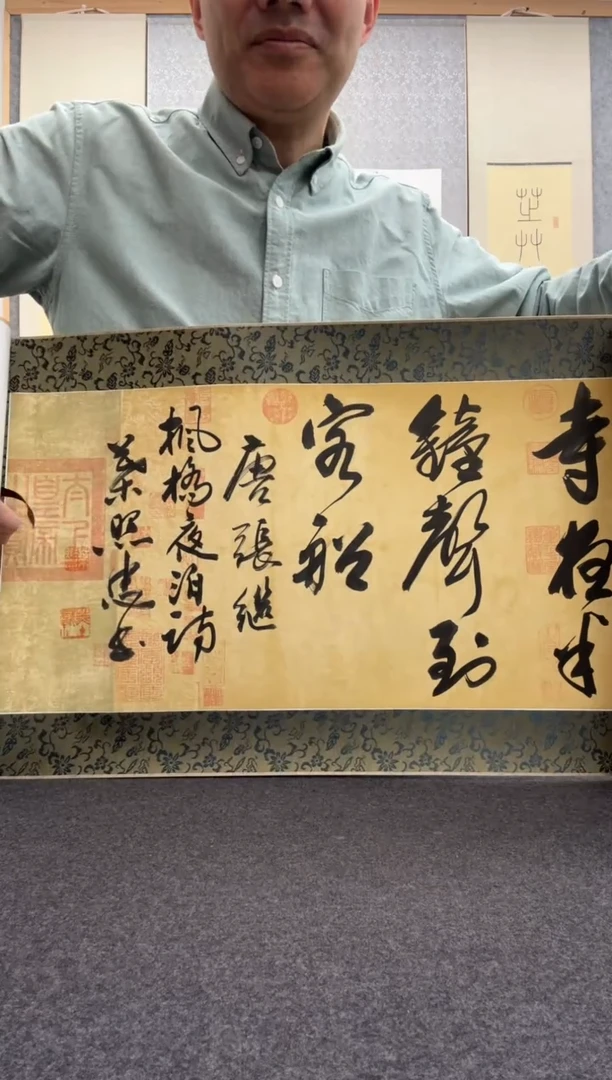 寺夜半
鐘聲到
客船
唐張繼
楓橋夜泊詩
葉照 書